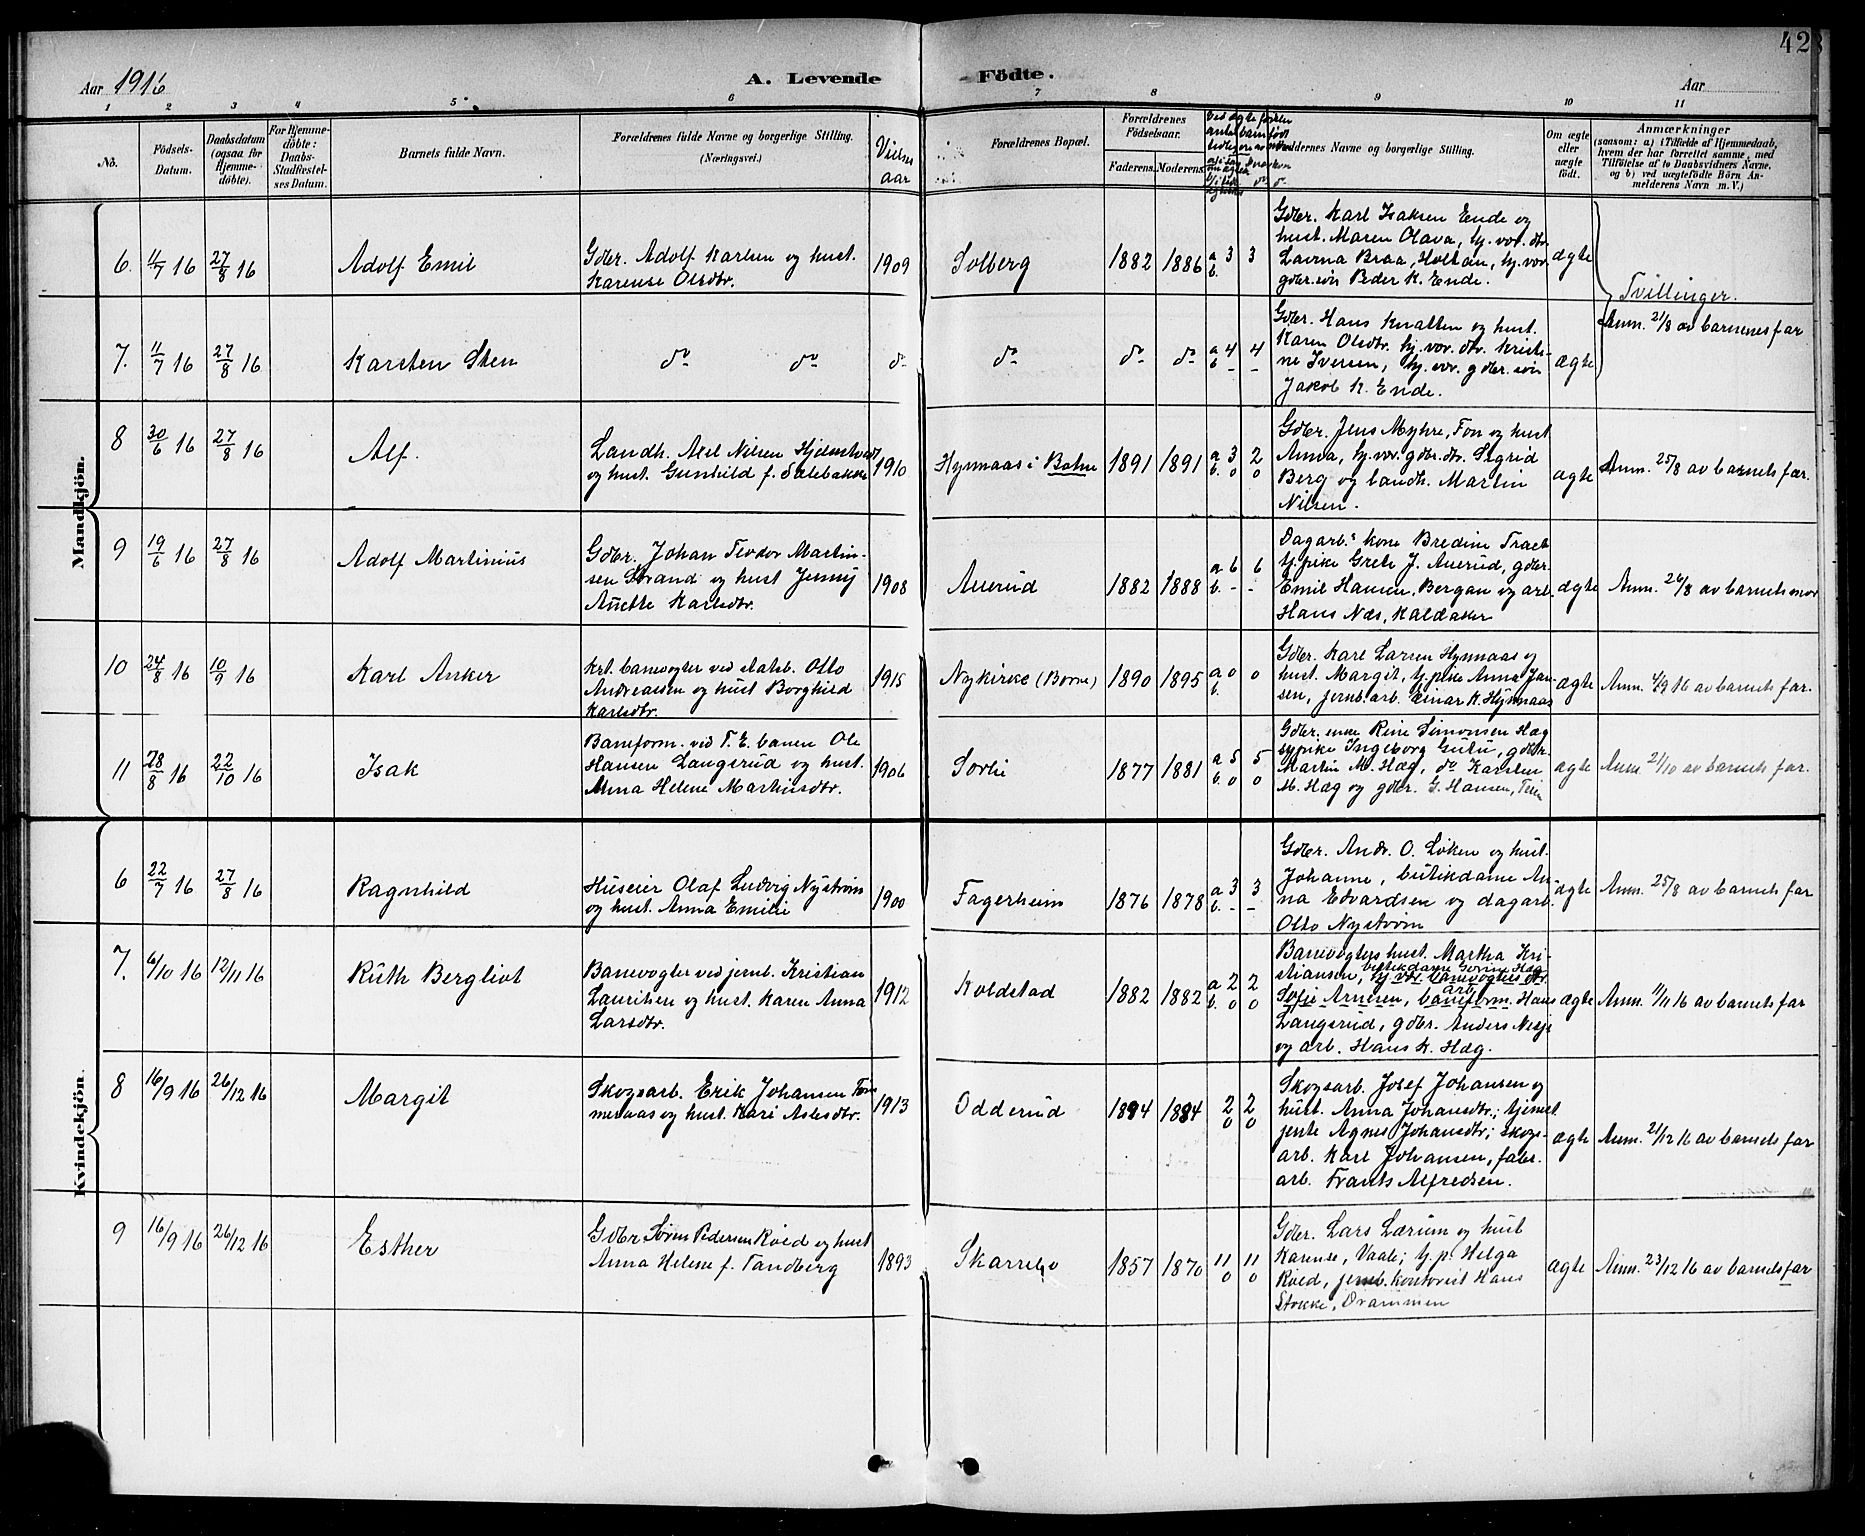 428
Aar 1916
A. Levende Födte.
Aar
1 2 3 4 5 6 7 8 9 10 11
No.
Födsels-
Datum.
Daabsdatum
(ogsaa for
Hjemme-
döbte).
For Hjemme-
döbte:
Daabs-
Stadfæstel-
ses Datum.
Barnets fulde Navn.
Forældrenes fulde Navne og borgerlige Stilling.
(Næringsvei.)
Vielses
aar
Forældrenes Bopæl.
Forældrenes
Födselsaar.
Faderens. Moderens.
Faddernes Navne og borgerlige Stilling.
Om ægte
eller
uægte
födt.
Anmærkninger
(saasom: a) i Tilfælde af Hjemmedaab,
hvem der har forrettet samme, med
Tilföielse af to Daabsvidners Navne,
og b) ved uægtefödte Börn An-
melderens Navn m. V.)
Mandkjön.
6. 11/7 16 27/8 16 Adolf Emil
Gdbr. Adolf Karlsen og hust.
Karense Olsdtr.
1909 Solberg 1882 1886 a 3 3
b.
Gdbr. Karl Isaksen Ende og
hust. Maren Olava, hj. vær. dtr.
Laura Braa, Holtan, hj. vær.
gdbr. søn Peder K. Ende.
ægte
Tvillinger.
Anm. 21/8 av barnenes far
7. 11/7 16 27/8 16 Karsten Sten
do do do do do do a 4 4
b - -
Gdbr. Hans Knatten og hust.
Karen Olsdtr. hj. vær. dtr. Kristi-
ne Iversen, hj. vær. gdbr. søn
Jakob K. Ende.
ægte
8 30/6 16 27/8 16 Alf.
Landh. Axel Nilsen Hjelmtvedt
og hust. Gunhild f. Salebakke
1910 Hynnaas i Botne 1891 1891 a 3 2
b. 0 0
Gdbr. Jens Myhre, Fon og hust
Anna, hj. vær. gdbr. dtr. Sigrid
Berg og landh. Martin
Nilsen.
ægte Anm. 25/8 av barnets far.
9 19/6 16 27/8 16 Adolf Martinius
Gdbr. Johan Teodor Martin-
sen Strand og hust Jenny
Anette Karlsdtr.
1908 Auerud 1882 1888 a 6 6
b. - -
Dagarb.s kone Bredine Traet
tj. pike Grete J. Auerud, gdbr.
Emil Hansen, Bergan og arb.
Hans Næs, Kaldaker
ægte Anm. 26/8 av barnets mor
10 24/8 16 10/9 16 Karl Anker
Kst. banevogter ved statsb. Otto
Andreassen og hust Borghild
Karlsdtr.
1915 Nykirke (Borre) 1890 1895 a 0 0
b.
Gdbr. Karl Larsen Hynnaas og
hust. Margit, tj. pike Anna Jan-
sen, jernb. arb. Einar K. Hynnaas
ægte Anm. 4/9 16 av barnets far.
11 28/8 16 22/10 16 Isak
Baneform. ved T. E. banen Ole
Hansen Langsrud og hust.
Anna Helene Marhusdtr.
1906 Sorbi 1877 1881 a 5 5
b. 0 0
Gdbr. enke Rine Simonsen Hæg
sypike Ingeborg Gutu, gdbr.
Martin M. Hæg, do Karsten
M. Hæg og gdbr. G. Hansen,
ægte Anm. 21/10 av barnets far.
Kvindekjön.
6 22/7 16 27/8 16 Ragnhild
Huseier Olaf Ludvig Nystrøm
og hust. Anna Emilie
1900 Fagerheim 1876 1878 a 3 3
b. - -
Gdbr. Andr. O. Løken og hust.
Johanne, butikdame An-
na Edvardsen og dagarb.
Otto Nystrøm
ægte Anm. 25/8 av barnets far
7. 6/10 16 12/11 16 Ruth Bergliot
Banevogter ved jernb. Kristian
Lauritsen og hust. Karen Anna
Larsdtr.
1912 Koldstad 1882 1882 a 2 2
b. 0 0
Banevogters hust. Martha Kri-
stiansen, butikdame Gorine Hæg
hj. vær. banevogters dtr.
Sofie Arnesen, baneform. arb. Hans
Langsrud, gdbr. Anders Nesje
og arb. Hans K. Hæg.
ægte Anm. 11/11 16 av barnets far
8 16/9 16 26/12 16 Margit
Skogsarb. Erik Johansen Tom-
meraas og hust. Kari Aslesdtr.
1913 Odderud 1894 1884 2 2
0 0
Skogsarb. Josef Johansen og
hust. Anna Johansdtr; tjenest-
jente Agnes Johansdtr; skogs-
arb. Karl Johansen, fabr.
arb. Frants Alfredsen.
ægte Anm. 21/12 16 av barnets far
9 16/9 16 26/12 16 Esther
Gdbr Søren Pedersen Røed og hust
Anna Helene f. Tandberg
1893 Skarrebo 1857 1870 11 11
0 0
Gdbr. Lars Lærum og hust
Karense, Vaale; tj. p. Helga
Røed, jernb. kontorist Hans
Stokke, Drammen
ægte Anm. 23/12 16 av barnets far